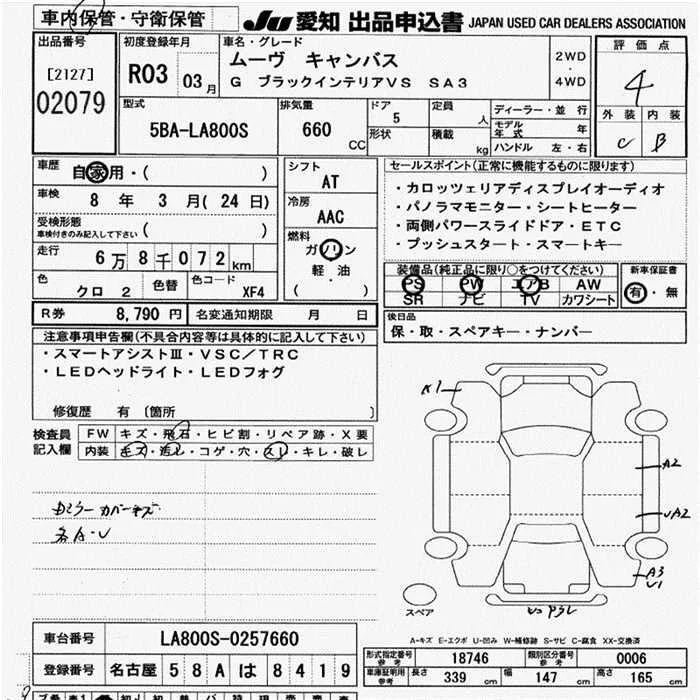 車内保管・守衛保管
JU 愛知 出品申込書 JAPAN USED CAR DEALERS ASSOCIATION
出品番号
[2127]
02079
初度登録年月
R03 03月
車名・グレード
ムーヴ キャンバス
G ブラックインテリアVS SA3
2WD
・
4WD
評価点
4
外装 内装
C B
型式
5BA-LA800S
排気量
660 CC
ドア
5
形状
定員
人
積載
kg
ディーラー・並行
モデル年式 年
ハンドル 左・右
車歴
自家用・( )
車検
8年 3月(24日)
受検形態
車検付きのみ記入して下さい ( )
走行
6万8千072km
色
クロ 2
色替
色コード
XF4
シフト
AT
冷房
AAC
燃料
ガソリン
軽・油
( )
セールスポイント(正常に機能するものに限ります)
・カロッツェリアディスプレイオーディオ
・パノラマモニター・シートヒーター
・両側パワースライドドア・ETC
・プッシュスタート・スマートキー
装備品(純正品に限り○をつけてください)
PS PW エアB AW
SR ナビ TV カワシート
新車保証書
有・無
R券 8,790円 名変通知期限 月 日
後日品
保・取・スペアキー・ナンバー
注意事項申告欄(不具合内容等は具体的に記入して下さい)
・スマートアシストⅢ・VSC/TRC
・LEDヘッドライト・LEDフォグ
修復歴 有 〔箇所 〕
検査員記入欄
FW キズ・飛石・ヒビ割・リペア跡・X要
内装 キズ・汚レ・コゲ・穴・スレ・キレ・破レ
カバーキズ
各A・U
A1
A2
UA2
A3
U1
スペア
A-キズ E-エクボ U-凹み W-補修跡 S-サビ C-腐食 XX-交換済
車台番号 LA800S-0257660
登録番号 名古屋 58A は 8419
型式指定番号 参考 18746 類別区分番号 参考 0006
車庫証明用 参考 長さ 339 cm 幅 147 cm 高さ 165 cm